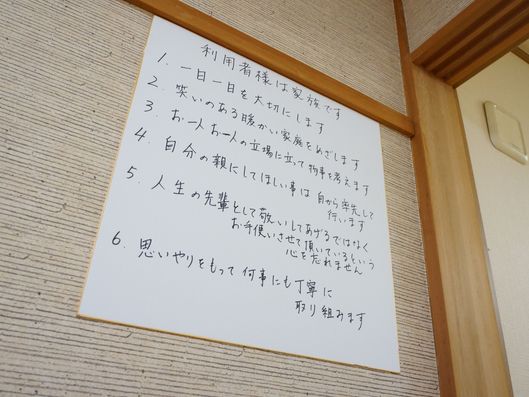 利用者様は家族です
1. 一日一日を大切にします
2. 笑いのある暖かい家庭をめざします
3. お一人お一人の立場に立って物事を考えます
4. 自分の親にしてほしい事は自から率先して
行います
5. 人生の先輩として敬いしてあげるではなく
お手使いさせて頂いているという
心を忘れません
6. 思いやりをもって何事にも丁寧に
取り組みます